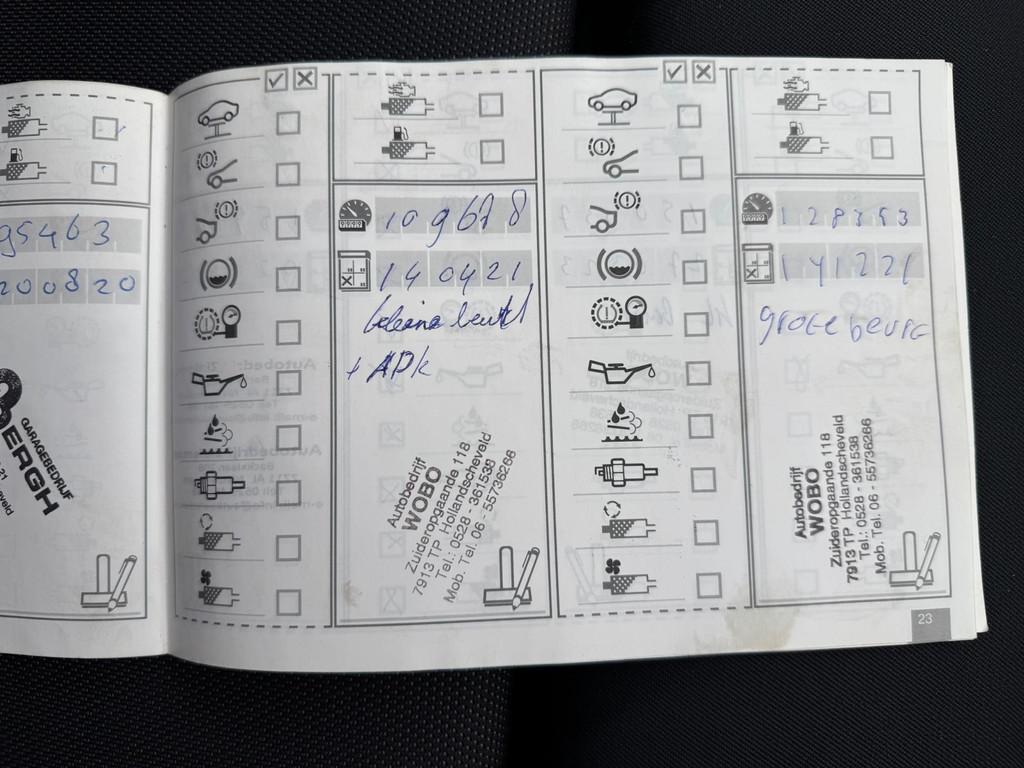 95463
200820
BERGH
GARAGEBEDRIJF
109678
140421
+ APK
Autobedrijf
WOBO
Zuideropgaande 118
7913 TP Hollandscheveld
Tel.: 0528 - 361538
Mob. Tel. 06 - 55736266
128353
141221
grote beurt
Autobedrijf
WOBO
Zuideropgaande 118
7913 TP Hollandscheveld
Tel.: 0528 - 361538
Mob. Tel. 06 - 55736266
23